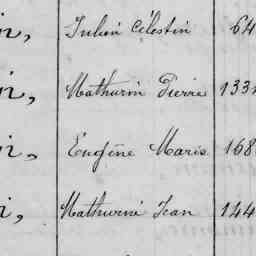 i, Julien Célestin 64
i, Mathurin Pierre 133
i, Eugène Marie 168
i, Mathurin Jean 144